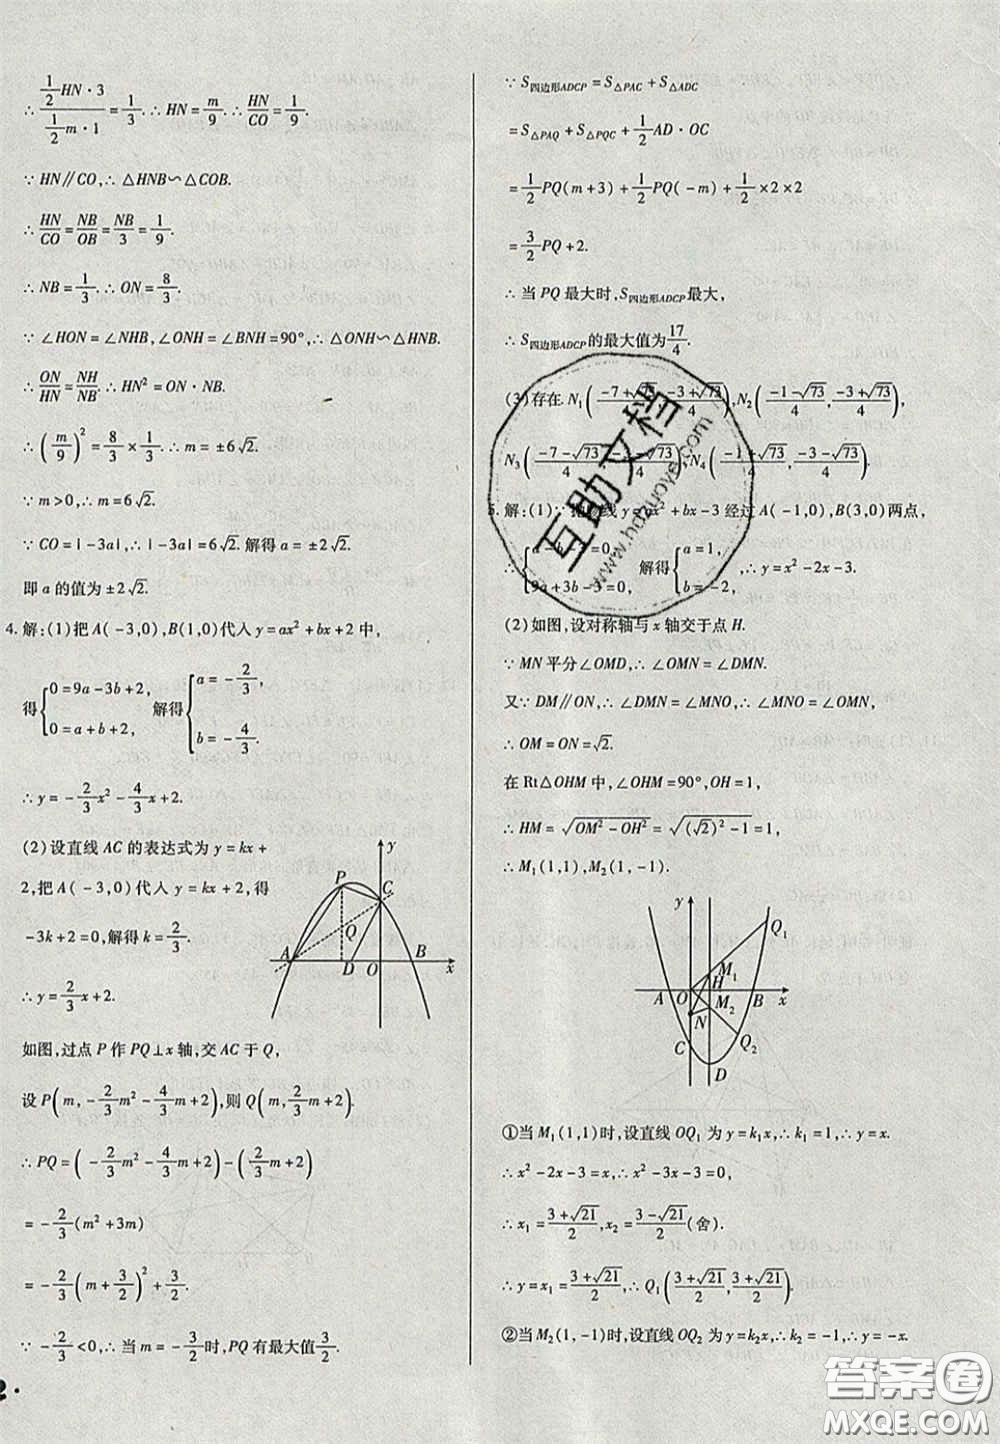 ∴ (1/2 HN·3)/(1/2 m·1) = 1/3. ∴ HN = m/9. ∴ HN/CO = 1/9.
∵ HN∥CO, ∴ △HNB∽△COB.
∴ HN/CO = NB/OB = NB/3 = 1/9.
∴ NB = 1/3. ∴ ON = 8/3.
∵ ∠HON = ∠NHB, ∠ONH = ∠BNH = 90°, ∴ △ONH∽△HNB.
∴ ON/HN = NH/NB. ∴ HN² = ON·NB.
∴ (m/9)² = 8/3 × 1/3. ∴ m = ±6√2.
∵ m>0, ∴ m = 6√2.
∵ CO = |-3a|, ∴ |-3a| = 6√2. 解得 a = ±2√2.
即 a 的值为 ±2√2.
4. 解:(1)把 A(-3,0), B(1,0)代入 y = ax² + bx + 2 中,
得 {0 = 9a - 3b + 2, 0 = a + b + 2, 解得 {a = -2/3, b = -4/3.
∴ y = -2/3x² - 4/3x + 2.
(2)设直线 AC 的表达式为 y = kx +
2, 把 A(-3,0)代入 y = kx + 2, 得
-3k + 2 = 0, 解得 k = 2/3.
∴ y = 2/3x + 2.
y
P
C
Q
A
D
O
B
x
如图, 过点 P 作 PQ⊥x 轴, 交 AC 于 Q,
设 P(m, -2/3m² - 4/3m + 2), 则 Q(m, 2/3m + 2).
∴ PQ = (-2/3m² - 4/3m + 2) - (2/3m + 2)
= -2/3(m² + 3m)
= -2/3(m + 3/2)² + 3/2.
∵ -2/3 < 0, ∴ 当 m = -3/2 时, PQ 有最大值 3/2.
2·
∵ S四边形ADCP = S△PAC + S△ADC
= S△PAQ + S△PQC + 1/2 AD·OC
= 1/2 PQ(m+3) + 1/2 PQ(-m) + 1/2 × 2 × 2
= 3/2 PQ + 2.
∴ 当 PQ 最大时, S四边形ADCP 最大,
∴ S四边形ADCP 的最大值为 17/4.
(3)存在 N₁((-7+√73)/4, (-3+√73)/4), N₂((-1-√73)/4, (-3+√73)/4),
N₃((-7-√73)/4, (-3-√73)/4), N₄((-1+√73)/4, (-3-√73)/4).
5. 解:(1)∵ 抛物线 y = ax² + bx - 3 经过 A(-1,0), B(3,0)两点,
∴ {a - b - 3 = 0, 9a + 3b - 3 = 0, 解得 {a = 1, b = -2, ∴ y = x² - 2x - 3.
(2)如图, 设对称轴与 x 轴交于点 H.
∵ MN 平分∠OMD, ∴ ∠OMN = ∠DMN.
又∵ DM∥ON, ∴ ∠DMN = ∠MNO = ∠OMN,
∴ OM = ON = √2.
在 Rt△OHM 中, ∠OHM = 90°, OH = 1,
∴ HM = √(OM² - OH²) = √((√2)² - 1) = 1,
∴ M₁(1,1), M₂(1,-1).
y
Q₁
M₁
H
A
O
B
x
M₂
N
Q₂
C
D
①当 M₁(1,1)时, 设直线 OQ₁ 为 y = k₁x, ∴ k₁ = 1, ∴ y = x.
∴ x² - 2x - 3 = x, ∴ x² - 3x - 3 = 0,
∴ x₁ = (3+√21)/2, x₂ = (3-√21)/2(舍).
∴ y = x₁ = (3+√21)/2, ∴ Q₁((3+√21)/2, (3+√21)/2).
②当 M₂(1,-1)时, 设直线 OQ₂ 为 y = k₂x, ∴ k₂ = -1, ∴ y = -x.
互助文档
www.hdzuoye.com
答案圈
MXQE.COM